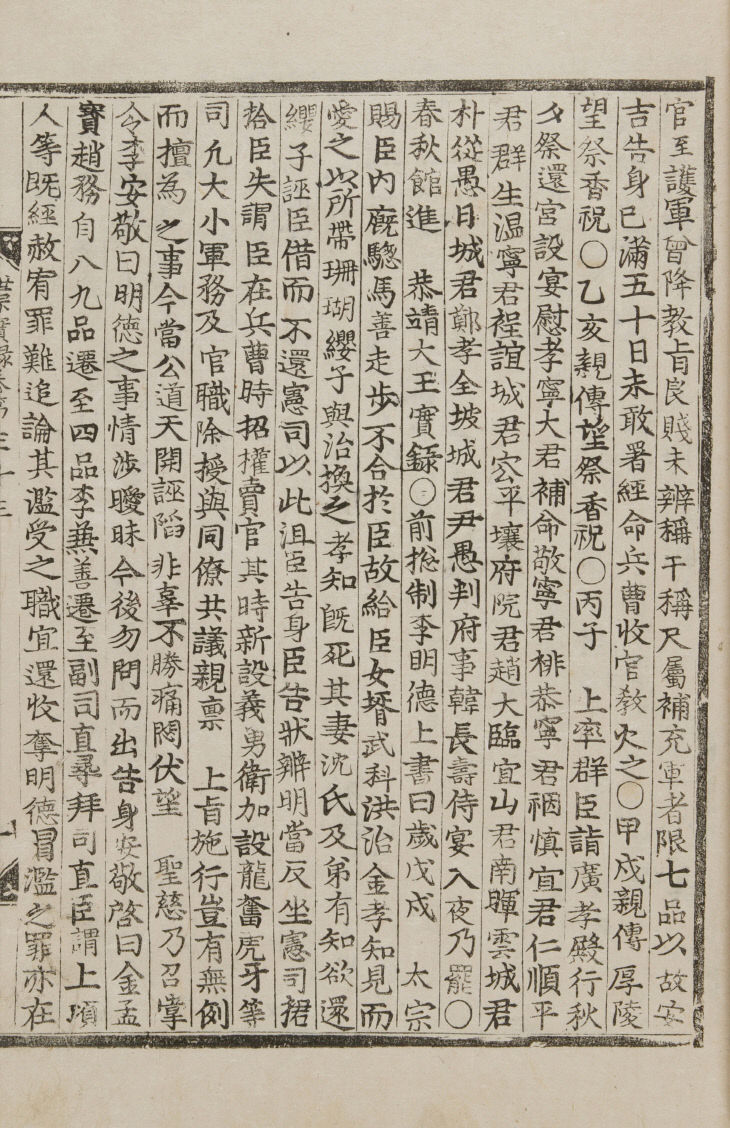 官至護軍曾降教旨良賤未辨稱干稱尺屬補充軍者限七品以故安
吉告身已滿五十日未敢署經命兵曹收官教火之○甲戌親傳厚陵
望祭香祝○乙亥親傳望祭香祝○丙子 上率群臣詣廣孝殿行秋
夕祭還宮設宴慰孝寧大君補命敬寧君裶恭寧君裀愼宜君仁順平
君群生温寧君裎誼城君㝐平壤府院君趙大臨宜山君南暉雲城君
朴從愚日城君鄭孝全坡城君尹愚判府事韓長壽侍宴入夜乃罷○
春秋館進 恭靖大王實錄○前摠制李明德上書曰歲戊戌 太宗
賜臣内廐驄馬善走步不合於臣故給臣女壻武科洪治金孝知見而
愛之以所帶珊瑚纓子與治換之孝知旣死其妻沈氏及弟有知欲還
纓子誣臣借而不還憲司以此沮臣告身臣告狀辨明當反坐憲司捃
拾臣失謂臣在兵曹時招權賣官其時新設義勇衛加設龍奮虎牙等
司凡大小軍務及官職除授與同僚共議親禀 上旨施行豈有無例
而擅為之事今當公道天開誣陷非辜不勝痛悶伏望 聖慈乃召掌
令李安敬曰明德之事情涉曖昧今後勿問而出告身安敬啓曰金孟
賓趙務自八九品遷至四品李兼善遷至副司直尋拜司直臣謂上項
人等既經赦宥罪難追論其濫受之職宜還收奪明德冒濫之罪亦在
世宗實錄卷第三十三